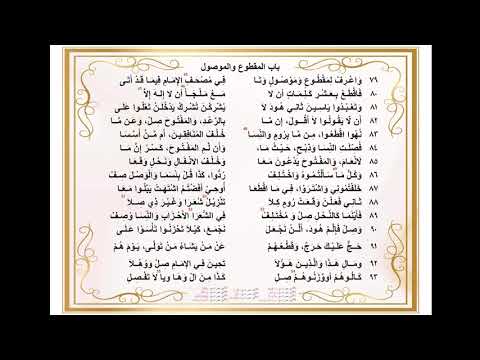 باب المقطوع والموصول
٧٩ وَاعْرِفْ لِمَقْطُوعٍ وَمَوْصُولٍ وَتَا فِي مُصْحَفِ الإِمَامِ فِيمَا قَدْ أَتَى
٨٠ فَاقْطَعْ بِعَشْرِ كَلِمَاتٍ أَن لا مَعْ مَلْجَأَ أَن لا إِلَهَ إِلاَّ
٨١ وَتَعْبُدُوا يَاسِينَ ثَانِي هُودَ لا يُشْرِكْنَ تُشْرِكْ يَدْخُلَنْ تَعْلُوا عَلَى
٨٢ أَن لا يَقُولُوا لا أَقُولَ، إِن مَّا بِالرَّعْدِ، وَالمَفْتُوحَ صِلْ، وَعَن مَّا
٨٣ نُهُوا اقْطَعُوا، مِن مَا بِرُومٍ وَالنِّسَا خُلْفُ المُنَافِقِينَ، أَم مَّنْ أَسَّسَا
٨٤ فُصِّلَتِ النِّسَا وَذِبْحٍ، حَيْثُ مَا، وَأَن لَّمِ المَفْتُوحَ، كَسْرُ إِنَّ مَا
٨٥ لانْعَامَ، وَالمَفْتُوحَ يَدْعُونَ مَعَا وَخُلْفُ الانْفَالِ وَنَحْلٍ وَقَعَا
٨٦ وَكُلِّ مَا سَأَلْتُمُوهُ وَاخْتُلِفْ رُدُّوا، كَذَا قُلْ بِئْسَمَا وَالوَصْلَ صِفْ
٨٧ خَلَفْتُمُونِي وَاشْتَرَوْا، فِي مَا اقْطَعَا أُوحِيْ أَفَضْتُمُ اشْتَهَتْ يَبْلُوا مَعَا
٨٨ ثَانِي فَعَلْنَ وَقَعَتْ رُومٌ كِلا تَنْزِيلُ شُعَرَا وَغَيْرَ ذِي صِلا
٨٩ فَأَيْنَمَا كَالنَّحْلِ صِلْ وَ مُخْتَلِفْ فِي الشُّعَرَا الأَحْزَابِ وَالنِّسَا وُصِفْ
٩٠ وَصِلْ فَإِلَّمْ هُودَ، أَلَّنْ نَجْعَلَ نَجْمَعَ، كَيْلا تَحْزَنُوا تَأْسَوْا عَلَى
٩١ حَجٌّ عَلَيْكَ حَرَجٌ، وَقَطْعُهُمْ عَن مَّن يَشَاءُ مَن تَوَلَّى، يَوْمَ هُمْ
٩٢ وَمَالِ هَذَا وَالَّذِينَ هَؤُلا تَحِينَ فِي الإِمَامِ صِلْ وَوُهِّلا
٩٣ كَالُوهُمُ أَوْ وَزَنُوهُمْ صِلِ كَذَا مِنَ الْ وَهَا وَيَا لا تَفْصِلِ